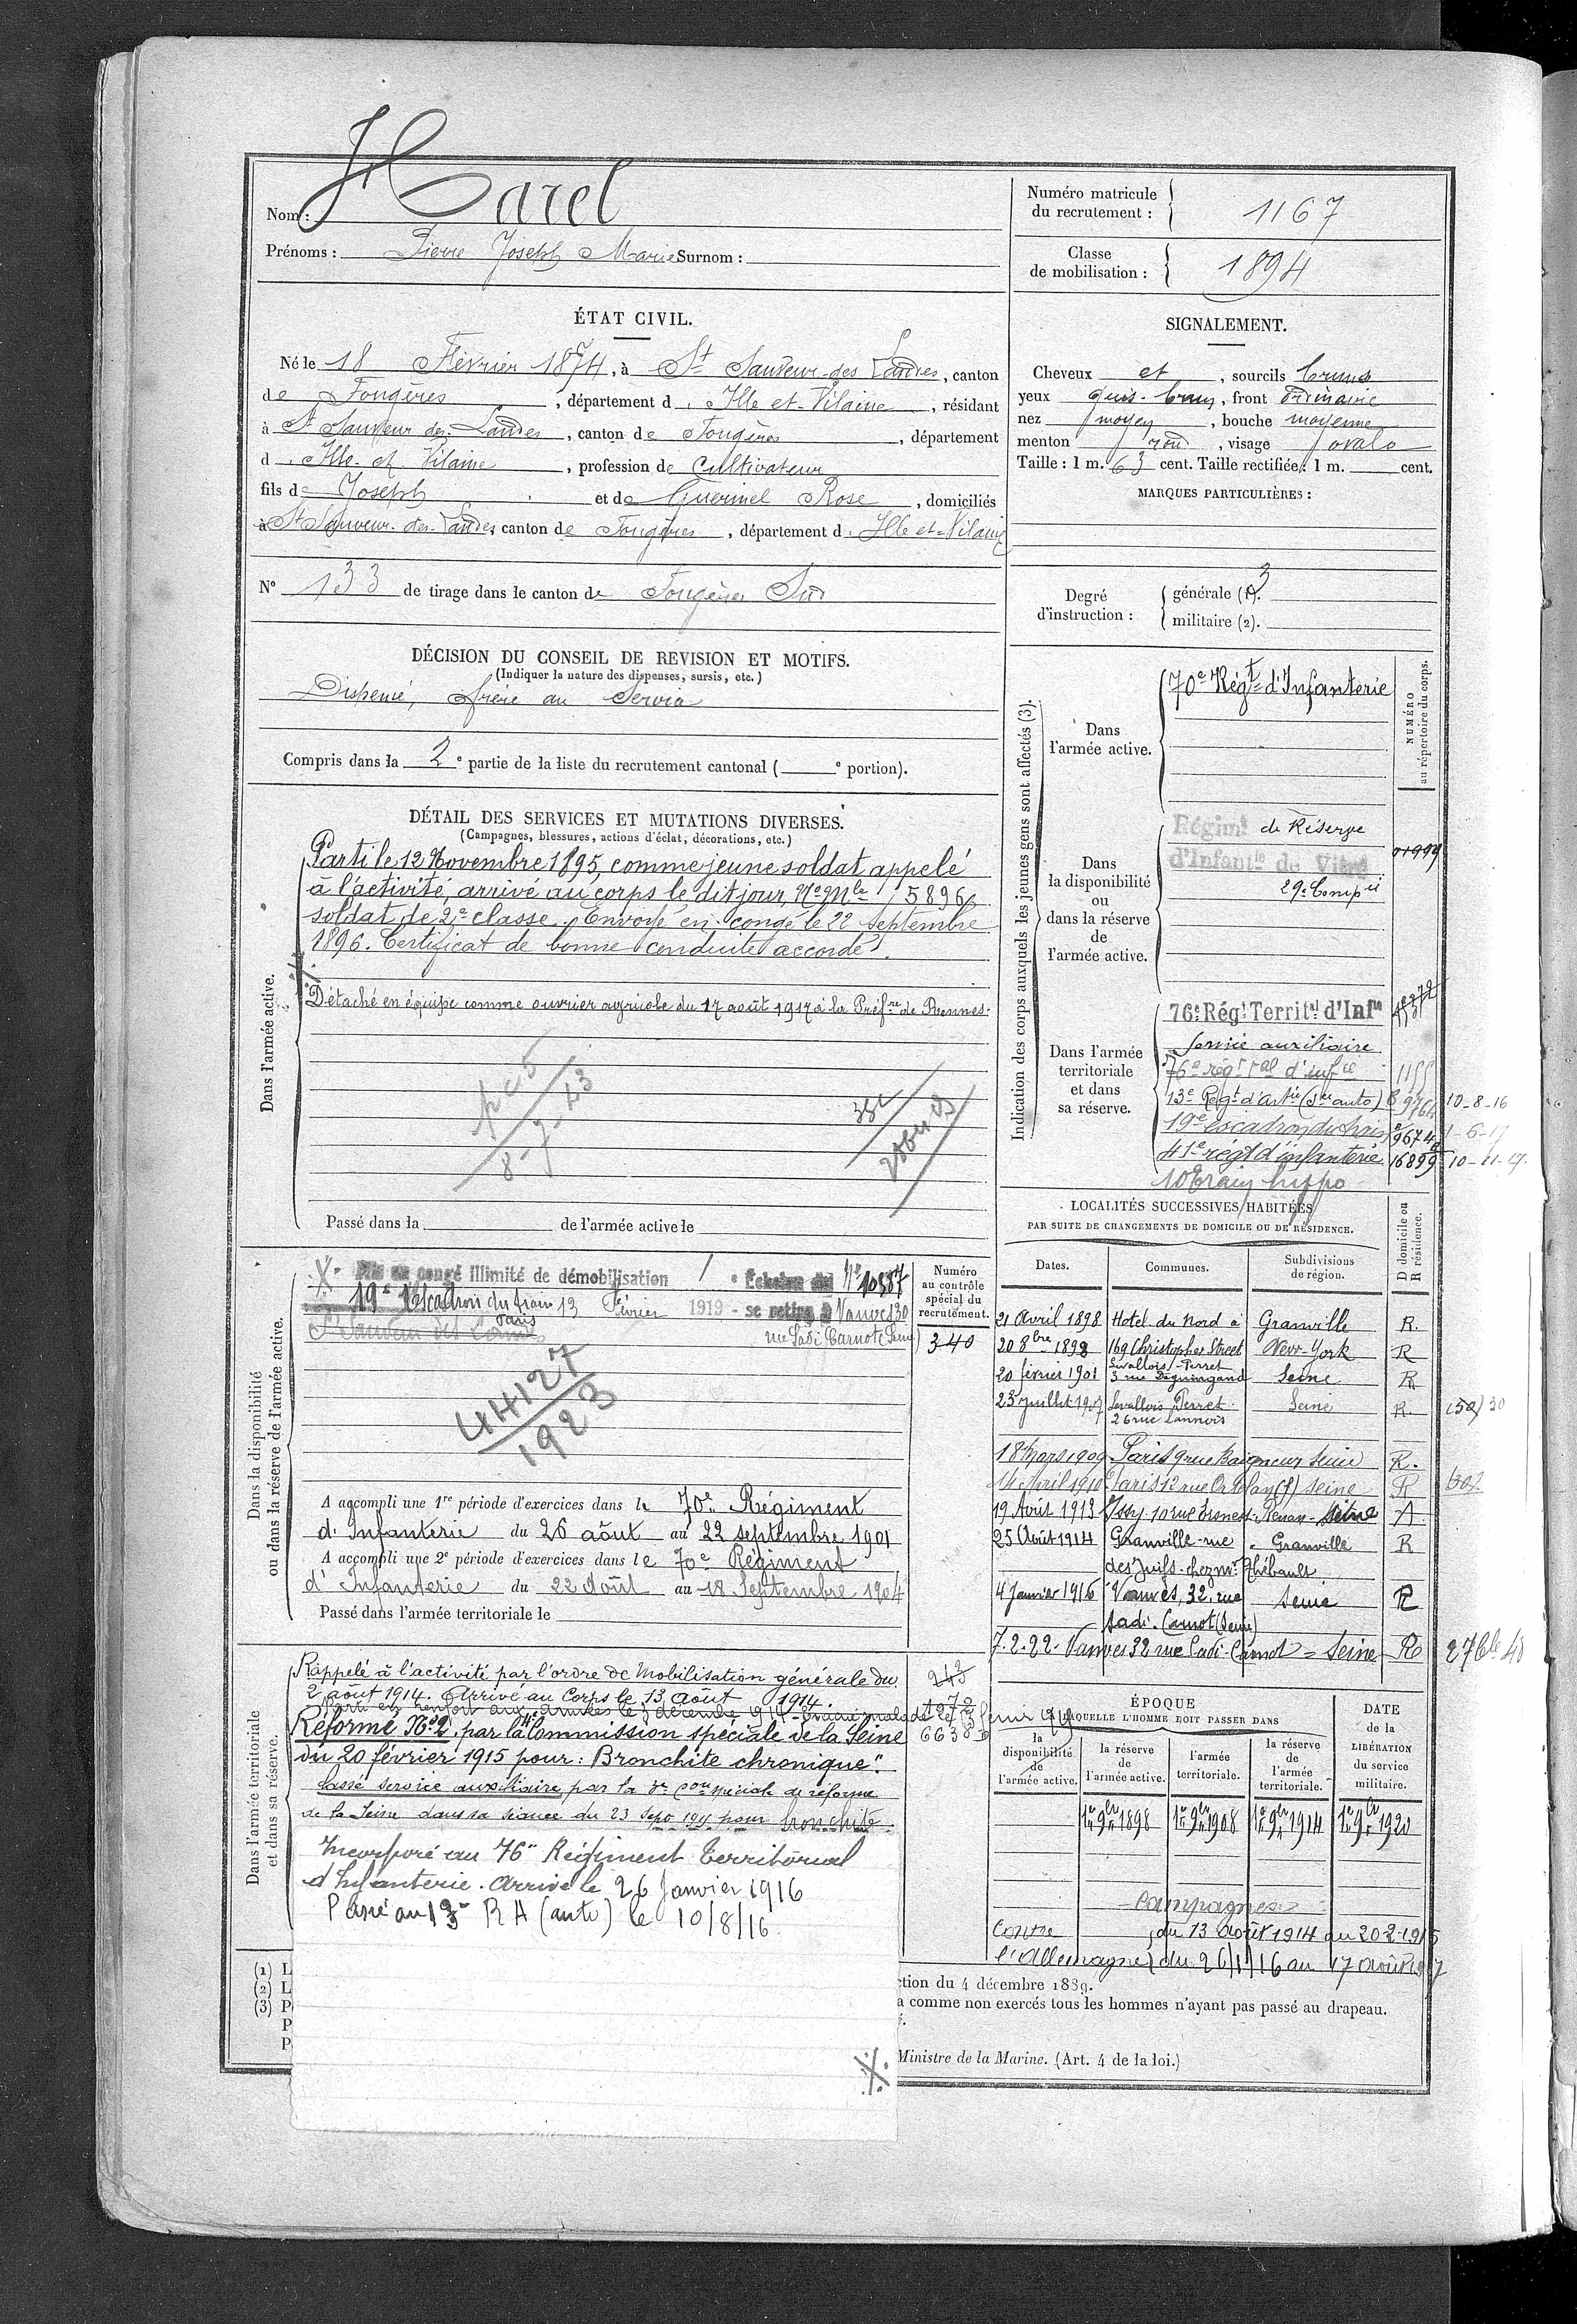 Nom : Harel
Prénoms : Pierre Joseph Marie Surnom :
Numéro matricule du recrutement : 1167
Classe de mobilisation : 1894
ÉTAT CIVIL.
Né le 18 Février 1874, à St Sauveur-des Landes, canton
de Fougères, département d'Ille-et-Vilaine, résidant
à St Sauveur des Landes, canton de Fougères, département
d'Ille-et-Vilaine, profession de Cultivateur
fils de Joseph et de Guerinel Rose, domiciliés
à St Sauveur-des-Landes, canton de Fougères, département d'Ille-et-Vilaine
N° 133 de tirage dans le canton de Fougères Sud
SIGNALEMENT.
Cheveux et, sourcils bruns
yeux gris-brun, front ordinaire
nez moyen, bouche moyenne
menton rond, visage ovale
Taille : 1 m. 63 cent. Taille rectifiée : 1 m. cent.
MARQUES PARTICULIÈRES :
Degré d'instruction : générale (1). 3
militaire (2).
DÉCISION DU CONSEIL DE REVISION ET MOTIFS.
(Indiquer la nature des dispenses, sursis, etc.)
Dispensé, frère au service
Compris dans la 2e partie de la liste du recrutement cantonal ( e portion).
DÉTAIL DES SERVICES ET MUTATIONS DIVERSES.
(Campagnes, blessures, actions d'éclat, décorations, etc.)
Dans l'armée active.
Parti le 12 Novembre 1895, comme jeune soldat appelé
à l'activité, arrivé au corps le dit jour, No Mle 5896,
soldat de 2e classe. Envoyé en congé le 22 Septembre
1896. Certificat de bonne conduite accordé.
Détaché en équipe comme ouvrier agricole du 17 août 1917 à la Préfre de Rennes.
Passé dans la de l'armée active le
Indication des corps auxquels les jeunes gens sont affectés (3).
NUMÉRO au répertoire du corps.
Dans l'armée active.
70e Régt d'Infanterie
Dans la disponibilité ou dans la réserve de l'armée active.
Régimt de Réserve
d'Infantie de Vitré
29e Compie
Dans l'armée territoriale et dans sa réserve.
76e Régt Territal d'Infie
Service auxiliaire
76e régt tal d'infie 1155
13e Régt d'Artie (Sce auto) 9764 10-8-16
19e escadron du train 9674 1-6-17
41e régt d'infanterie 16899 10-11-17
10e train hippo
Dans la disponibilité ou dans la réserve de l'armée active.
Mis en congé illimité de démobilisation Echelon No 10587
19e Escadron du train 13 Février 1919 - se retire à Vanves 30
Paris
St Sauveur des Landes
rue Sadi Carnot (Seine)
44127
1923
Numéro au contrôle spécial du recrutement.
340
A accompli une 1re période d'exercices dans le 70e Régiment
d'Infanterie du 26 août au 22 septembre 1901
A accompli une 2e période d'exercices dans le 70e Régiment
d'Infanterie du 22 Août au 18 Septembre 1904
Passé dans l'armée territoriale le
LOCALITÉS SUCCESSIVES HABITÉES
PAR SUITE DE CHANGEMENTS DE DOMICILE OU DE RÉSIDENCE.
Dates. Communes. Subdivisions de région. D domicile ou R résidence.
21 Avril 1898 Hotel du Nord à Granville R.
20 8bre 1898 169 Christopher Street New-York R
20 février 1901 Levallois-Perret 3 rue Deguingand Seine R
23 juillet 1907 Levallois Perret 26 rue Lannois Seine R.
18 Mars 1909 Paris 9 rue Baigneur Seine R.
14 Avril 1910 Paris 12 rue Ortolan (5) Seine R
19 Avril 1913 Issy 10 rue Ernest-Renan - Seine
25 Août 1914 Granville - rue Granville R
des Juifs - chez Mr Thébault
4 Janvier 1916 Vanves, 32, rue Seine R
Sadi-Carnot (Seine)
7.2.22. Vanves 32 rue Sadi-Carnot = Seine R
Dans l'armée territoriale et dans sa réserve.
Rappelé à l'activité par l'ordre de Mobilisation générale du
2 août 1914. Arrivé au Corps le 13 août 1914.
Réformé No 2, par la 4e Commission spéciale de la Seine
du 20 février 1915 pour : "Bronchite chronique".
Classé service auxiliaire par la Con spéciale de réforme
de la Seine dans sa séance du 23 Sept 1915 pour bronchite.
Incorporé au 76e Régiment Territorial
d'Infanterie. Arrivé le 26 Janvier 1916
Passé au 13e RA (auto) le 10/8/16
6638
ÉPOQUE
À LAQUELLE L'HOMME DOIT PASSER DANS
la disponibilité de l'armée active.
la réserve de l'armée active.
l'armée territoriale.
la réserve de l'armée territoriale.
DATE de la LIBÉRATION du service militaire.
1er 9bre 1898 1er 9bre 1908 1er 9bre 1914 1er 9bre 1920
Campagnes
Contre du 13 août 1914 au 20-2-1915
l'Allemagne du 26/1/16 au 17 août 1917
(1) L
(2) L
(3) P
P
P
ction du 4 décembre 1889.
a comme non exercés tous les hommes n'ayant pas passé au drapeau.
Ministre de la Marine. (Art. 4 de la loi.)